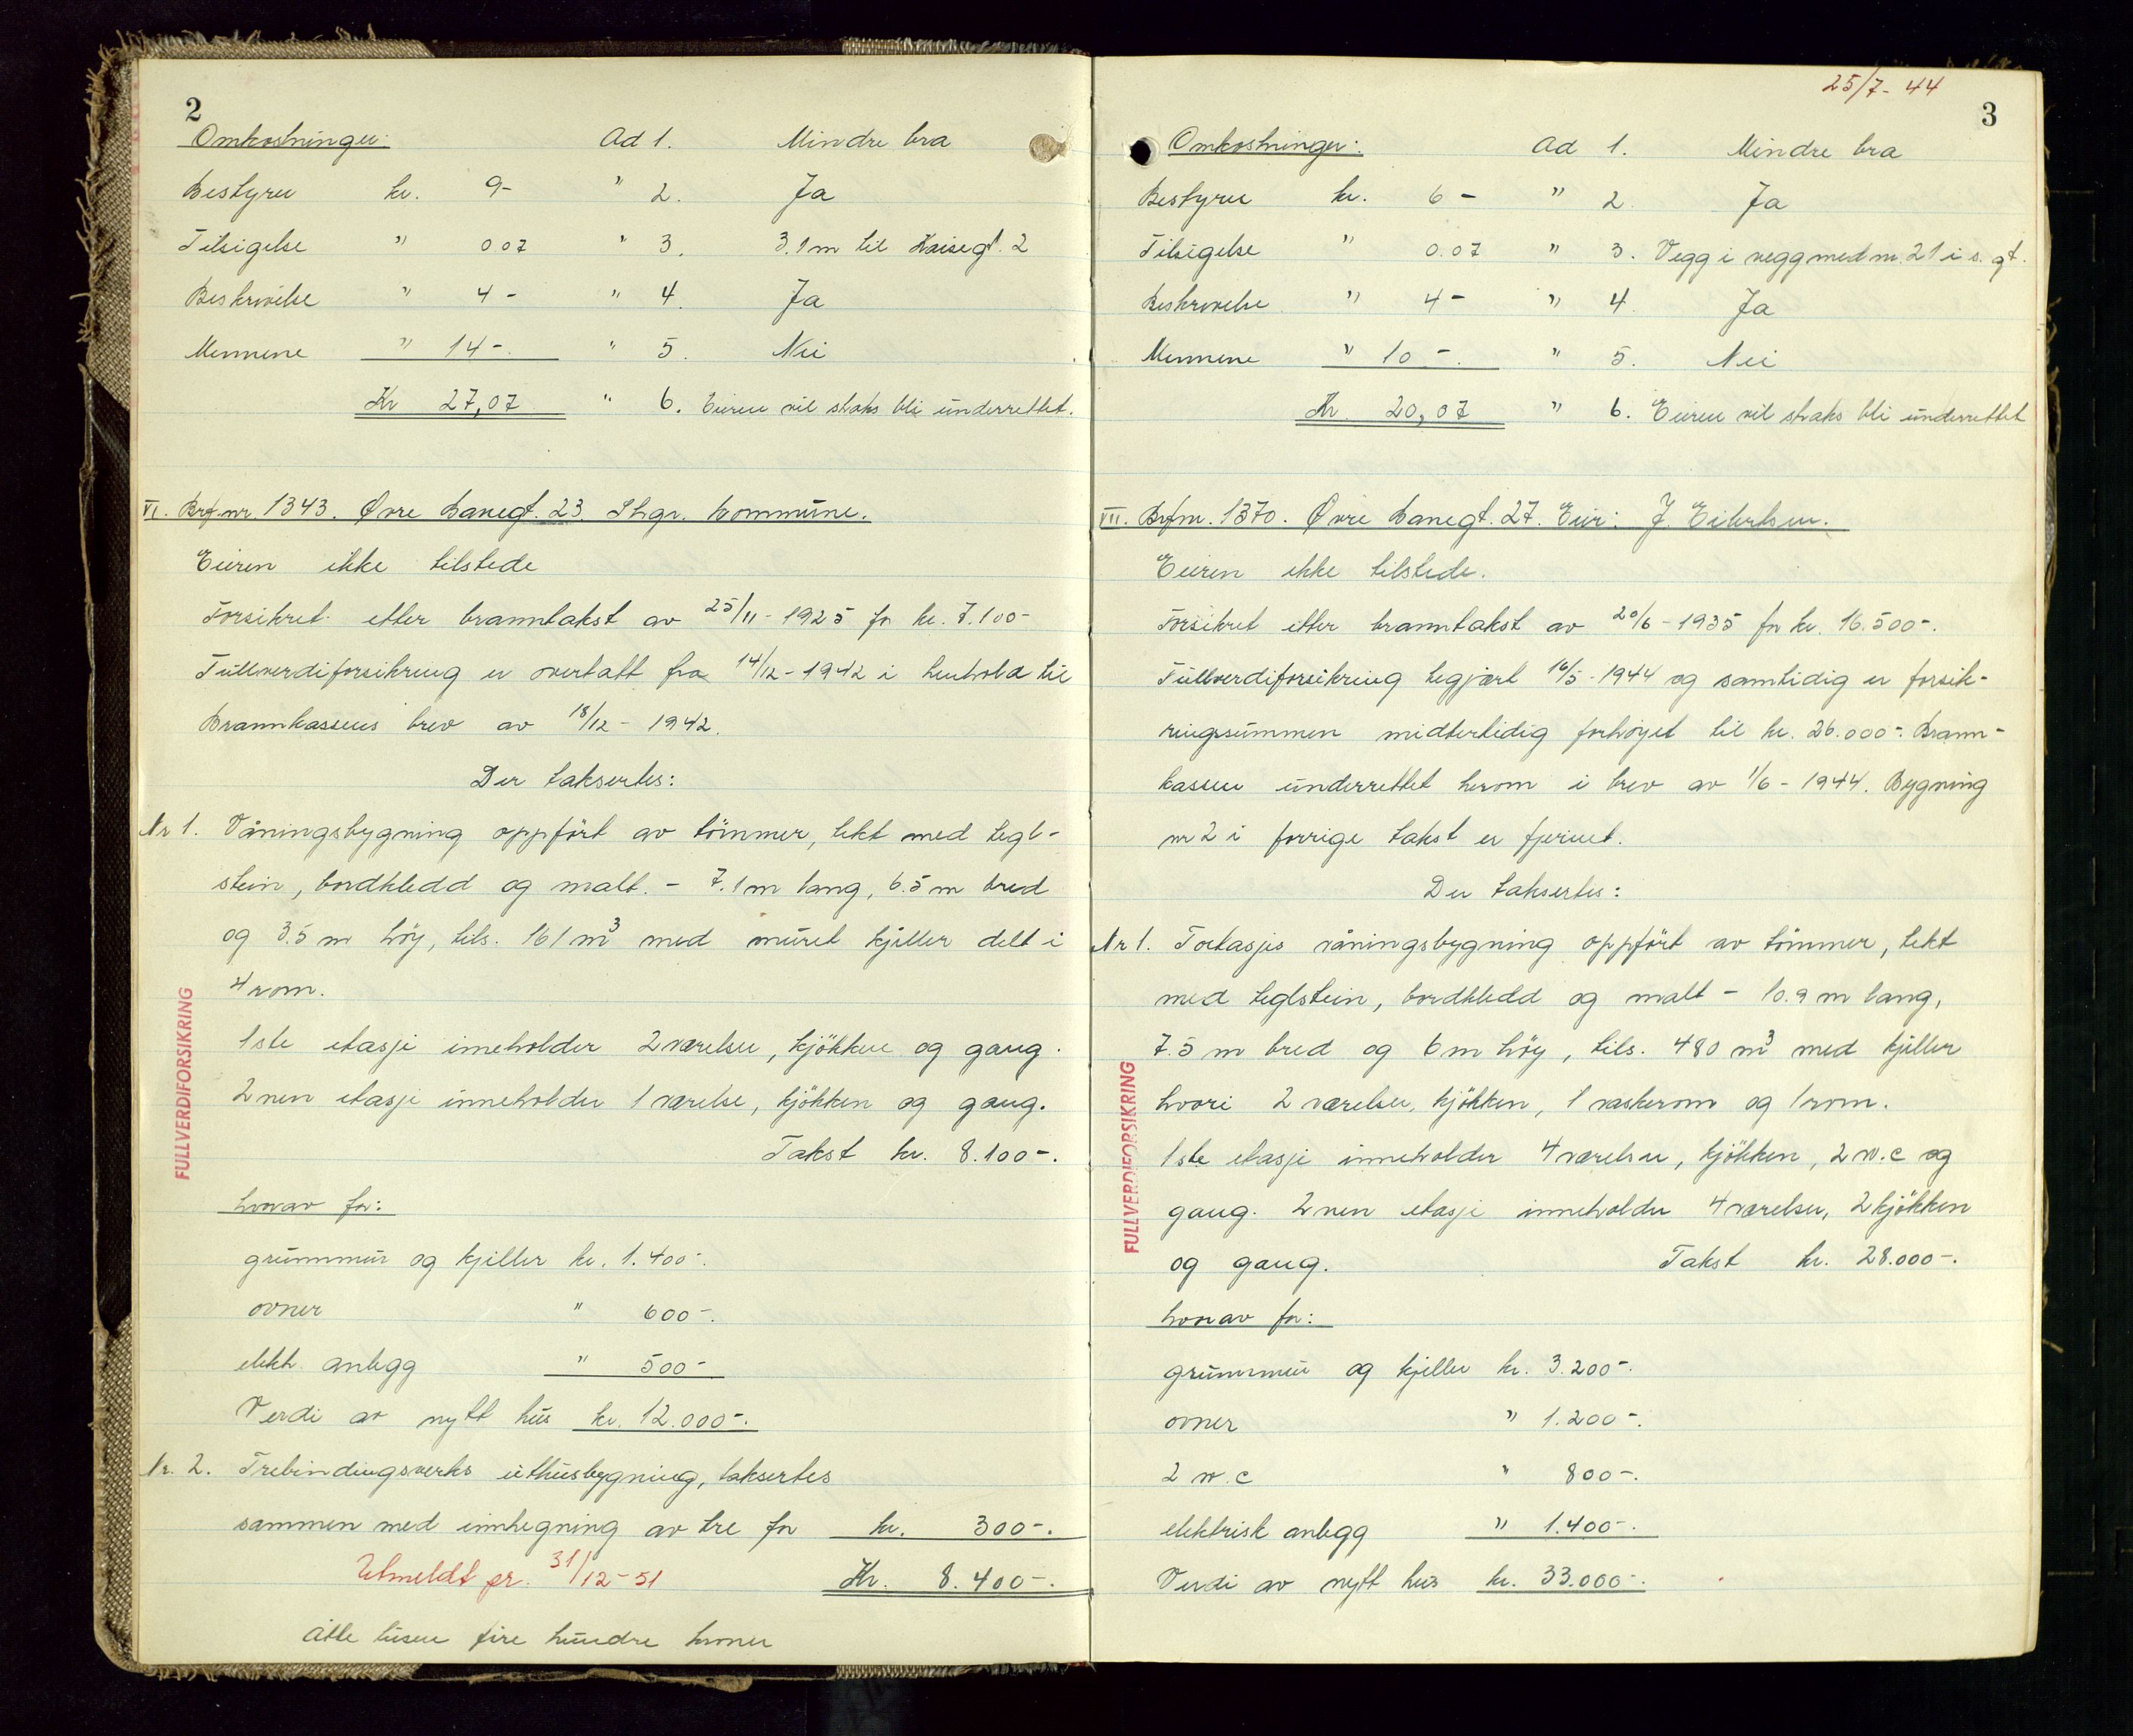 2
Omkostninger: Ad 1. Mindre bra
Bestyrer kr. 9- " 2. Ja
Tilsigelse " 0.07 " 3. 3.1 m til Kaisegt. 2
Beskrivelse " 4- " 4. Ja
Mennene " 14-. " 5. Nei
Kr 27,07 " 6. Eieren vil straks bli underrettet.
VI. Brf nr. 1343. Øvre Banegt. 23. Shgr. kommune.
Eieren ikke tilstede
Forsikret etter branntakst av 25/11-1925 for kr. 7.100-
Fullverdiforsikring er overtatt fra 14/12-1942 i henhold til
Brannkassens brev av 18/12-1942.
Der taksertes:
Nr 1. Våningsbygning oppført av tømmer, tekt med tegl-
stein, bordkledd og malt. - 7.1 m lang, 6.5 m bred
og 3.5 m höy, tils. 161 m³ med muret kjeller delt i
4 rom.
1ste etasje inneholder 2 værelser, kjökken og gang.
2nen etasje inneholder 1 værelse, kjökken og gang.
Takst kr. 8.100-.
hvorav for:
grunnmur og kjeller kr. 1.400-.
ovner " 600-.
elektr. anlegg " 500-
Verdi av nytt hus kr. 12.000-.
Nr. 2. Trebindingsverks uthusbygning, taksertes
sammen med innhegning av tre for kr. 300-.
Utmeldt pr. 31/12-51 Kr. 8.400-.
Åtte tusen fire hundre kroner
FULLVERDIFORSIKRING
25/7-44
3
Omkostninger: Ad 1. Mindre bra
Bestyrer kr. 6- " 2 Ja
Tilsigelse " 0.07 " 3. Vegg i vegg med nr. 21 i s. gt.
Beskrivelse " 4- " 4. Ja
Mennene " 10-. " 5. Nei
Kr. 20,07 " 6. Eieren vil straks bli underrettet
VII. Brf nr. 1370. Øvre Banegt. 27. Eier: J. Eilertsen.
Eieren ikke tilstede.
Forsikret etter branntakst av 20/6-1935 for kr. 16.500-.
Fullverdiforsikring begjært 16/5-1944 og samtidig er forsik-
ringssummen midlertidig forhöyet til kr. 26.000-. Brann-
kassen underrettet herom i brev av 1/6-1944. Bygning
nr 2 i forrige takst er fjernet.
Der taksertes:
Nr 1. Toetasjes våningsbygning oppfört av tömmer, tekt
med teglstein, bordkledd og malt - 10.9 m lang,
7.5 m bred og 6 m höy, tils. 480 m³ med kjeller
hvori 2 værelser, kjökken, 1 vaskerom og 1 rom.
1ste etasje inneholder 4 værelser, kjökken, 2 w.c og
gang. 2nen etasje inneholder 4 værelser, 2 kjökken
og gang. Takst kr. 28.000-.
hvorav for:
grunnmur og kjeller kr. 3.200-.
ovner " 1.200-.
2 w.c " 800-.
elektrisk anlegg " 1.400-.
Verdi av nytt hus kr. 33.000-.
FULLVERDIFORSIKRING